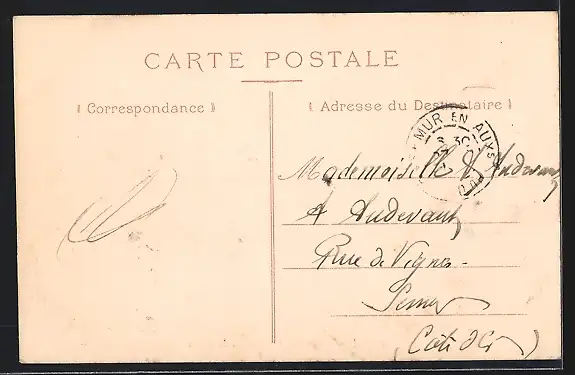 CARTE POSTALE
Correspondance
Adresse du Destinataire
MUR EN AUXS
Mademoiselle V. Andevant
A Andevant
Rue de Vignes
Semur
(Côte d'Or)